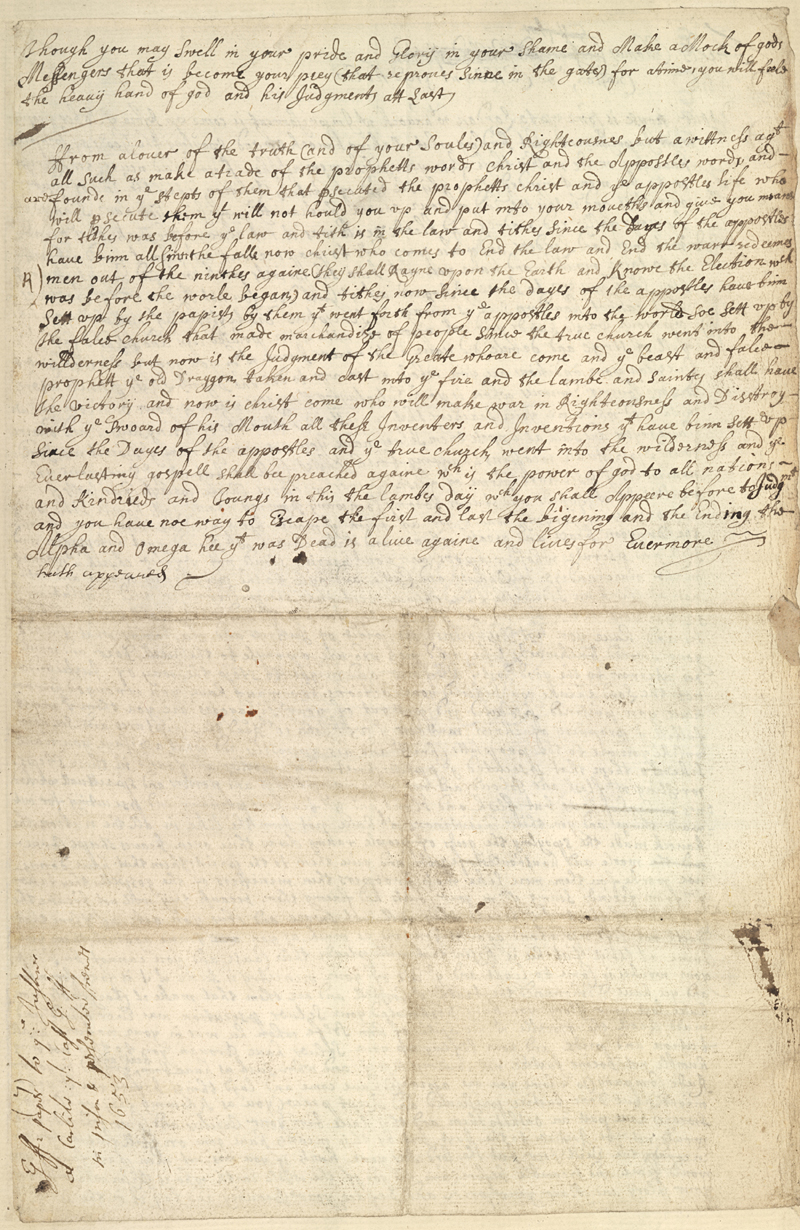 Though you may Swell in your pride and Glory in your Shame and Make a Mock of gods
Messengers that is become your prey (that reproves Sinne in the gates) for a time, you will feele
the heavy hand of god and his Judgments att Last
ffrom a lover of the truth (and of your Soules) and Righteousnes but a wittness agt
all Such as make a trade of the prophetts words Christ and the Appostles words, and
are founde in ye stepts of them that psecuted the prophetts christ and ye appostles life who
will psecute them yt will not hould you vp and put into your mouthes and give you meanes
for tithes was before ye law and tithes is in the law and tithes Since the Dayes of the appostles
have binn all (in) the falle now christ who comes to End the law and End the warr redeemes
R) men out of the ninthes againe (they shall Rayne vpon the Earth and Knowe the Election wch
was before the worle began) and tithes now Since the dayes of the appostles have binn
Sett vp by the papists by them yt went forth from ye appostles into the world Soe Sett vp by
the false church that made marchandize of people Since the true church went into the
willderness but now is the Judgment of the Greate whoare come and ye beast and false
prophett ye old Draggon taken and cast into ye fire and the lambe and Saints shall have
the Victory, and now is christ come who will make war in Righteousness and Disstroy
with ye Swoard of his Mouth all these Inventers and Inventions yt have binn Sett vp
Since the Dayes of the appostles and ye true church went into the wilderness and ye
Everlasting gospell shall bee preached againe wch is the power of god to all nations
and Kindreds and Toungs in this the lambes day wch you shall Appeere before to Judgmt
and you have noe way to Escape the first and last the bigining and the Ending the
Alpha and Omega hee yt was Dead is alive againe and lives for Evermore
hath appeared
G ff: paper to ye Justices
at Carlile yt cast G ff
in prison & psecuted friends
1653